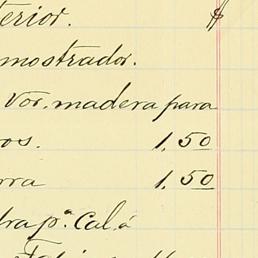 terior. $
mostrador.
vor. madera para
os. 1,50
rra 1,50
tra pª Cal,á